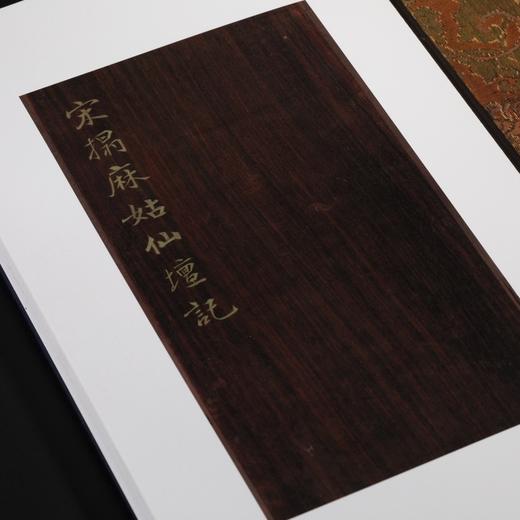 宋搨麻姑仙壇記